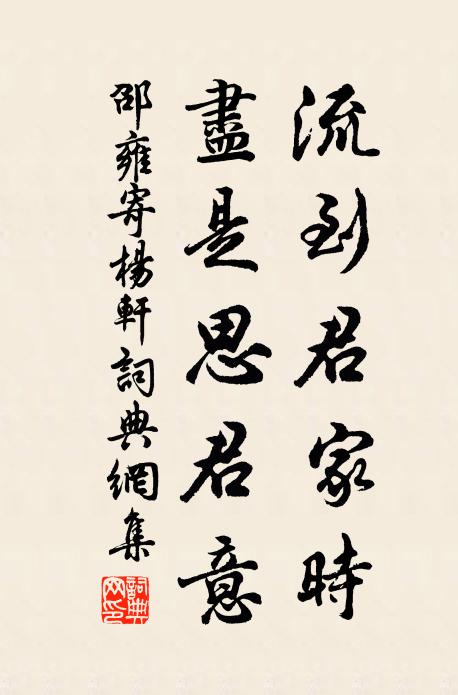 流到君家時
盡是思君意
邵雍寄楊軒詞典網集
詞典网印